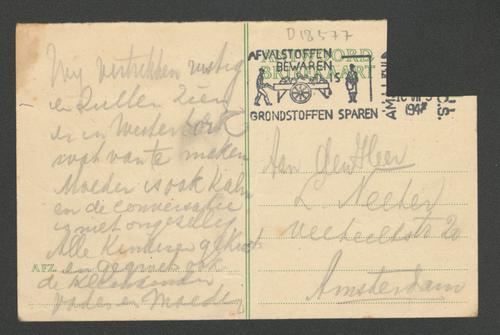 D18577
Wij vertrekken rustig
en zullen zien
er in Westerbork
wat van te maken
Moeder is ook kalm
en de conversatie
is niet ongezellig
Alle kinderen gekust
en gegroet ook
de
Vader en Moeder
AFZ.
BRIEFKAART
AFVALSTOFFEN
BEWAREN
IS
GRONDSTOFFEN SPAREN
Aan den Heer
L.
20
Amsterdam